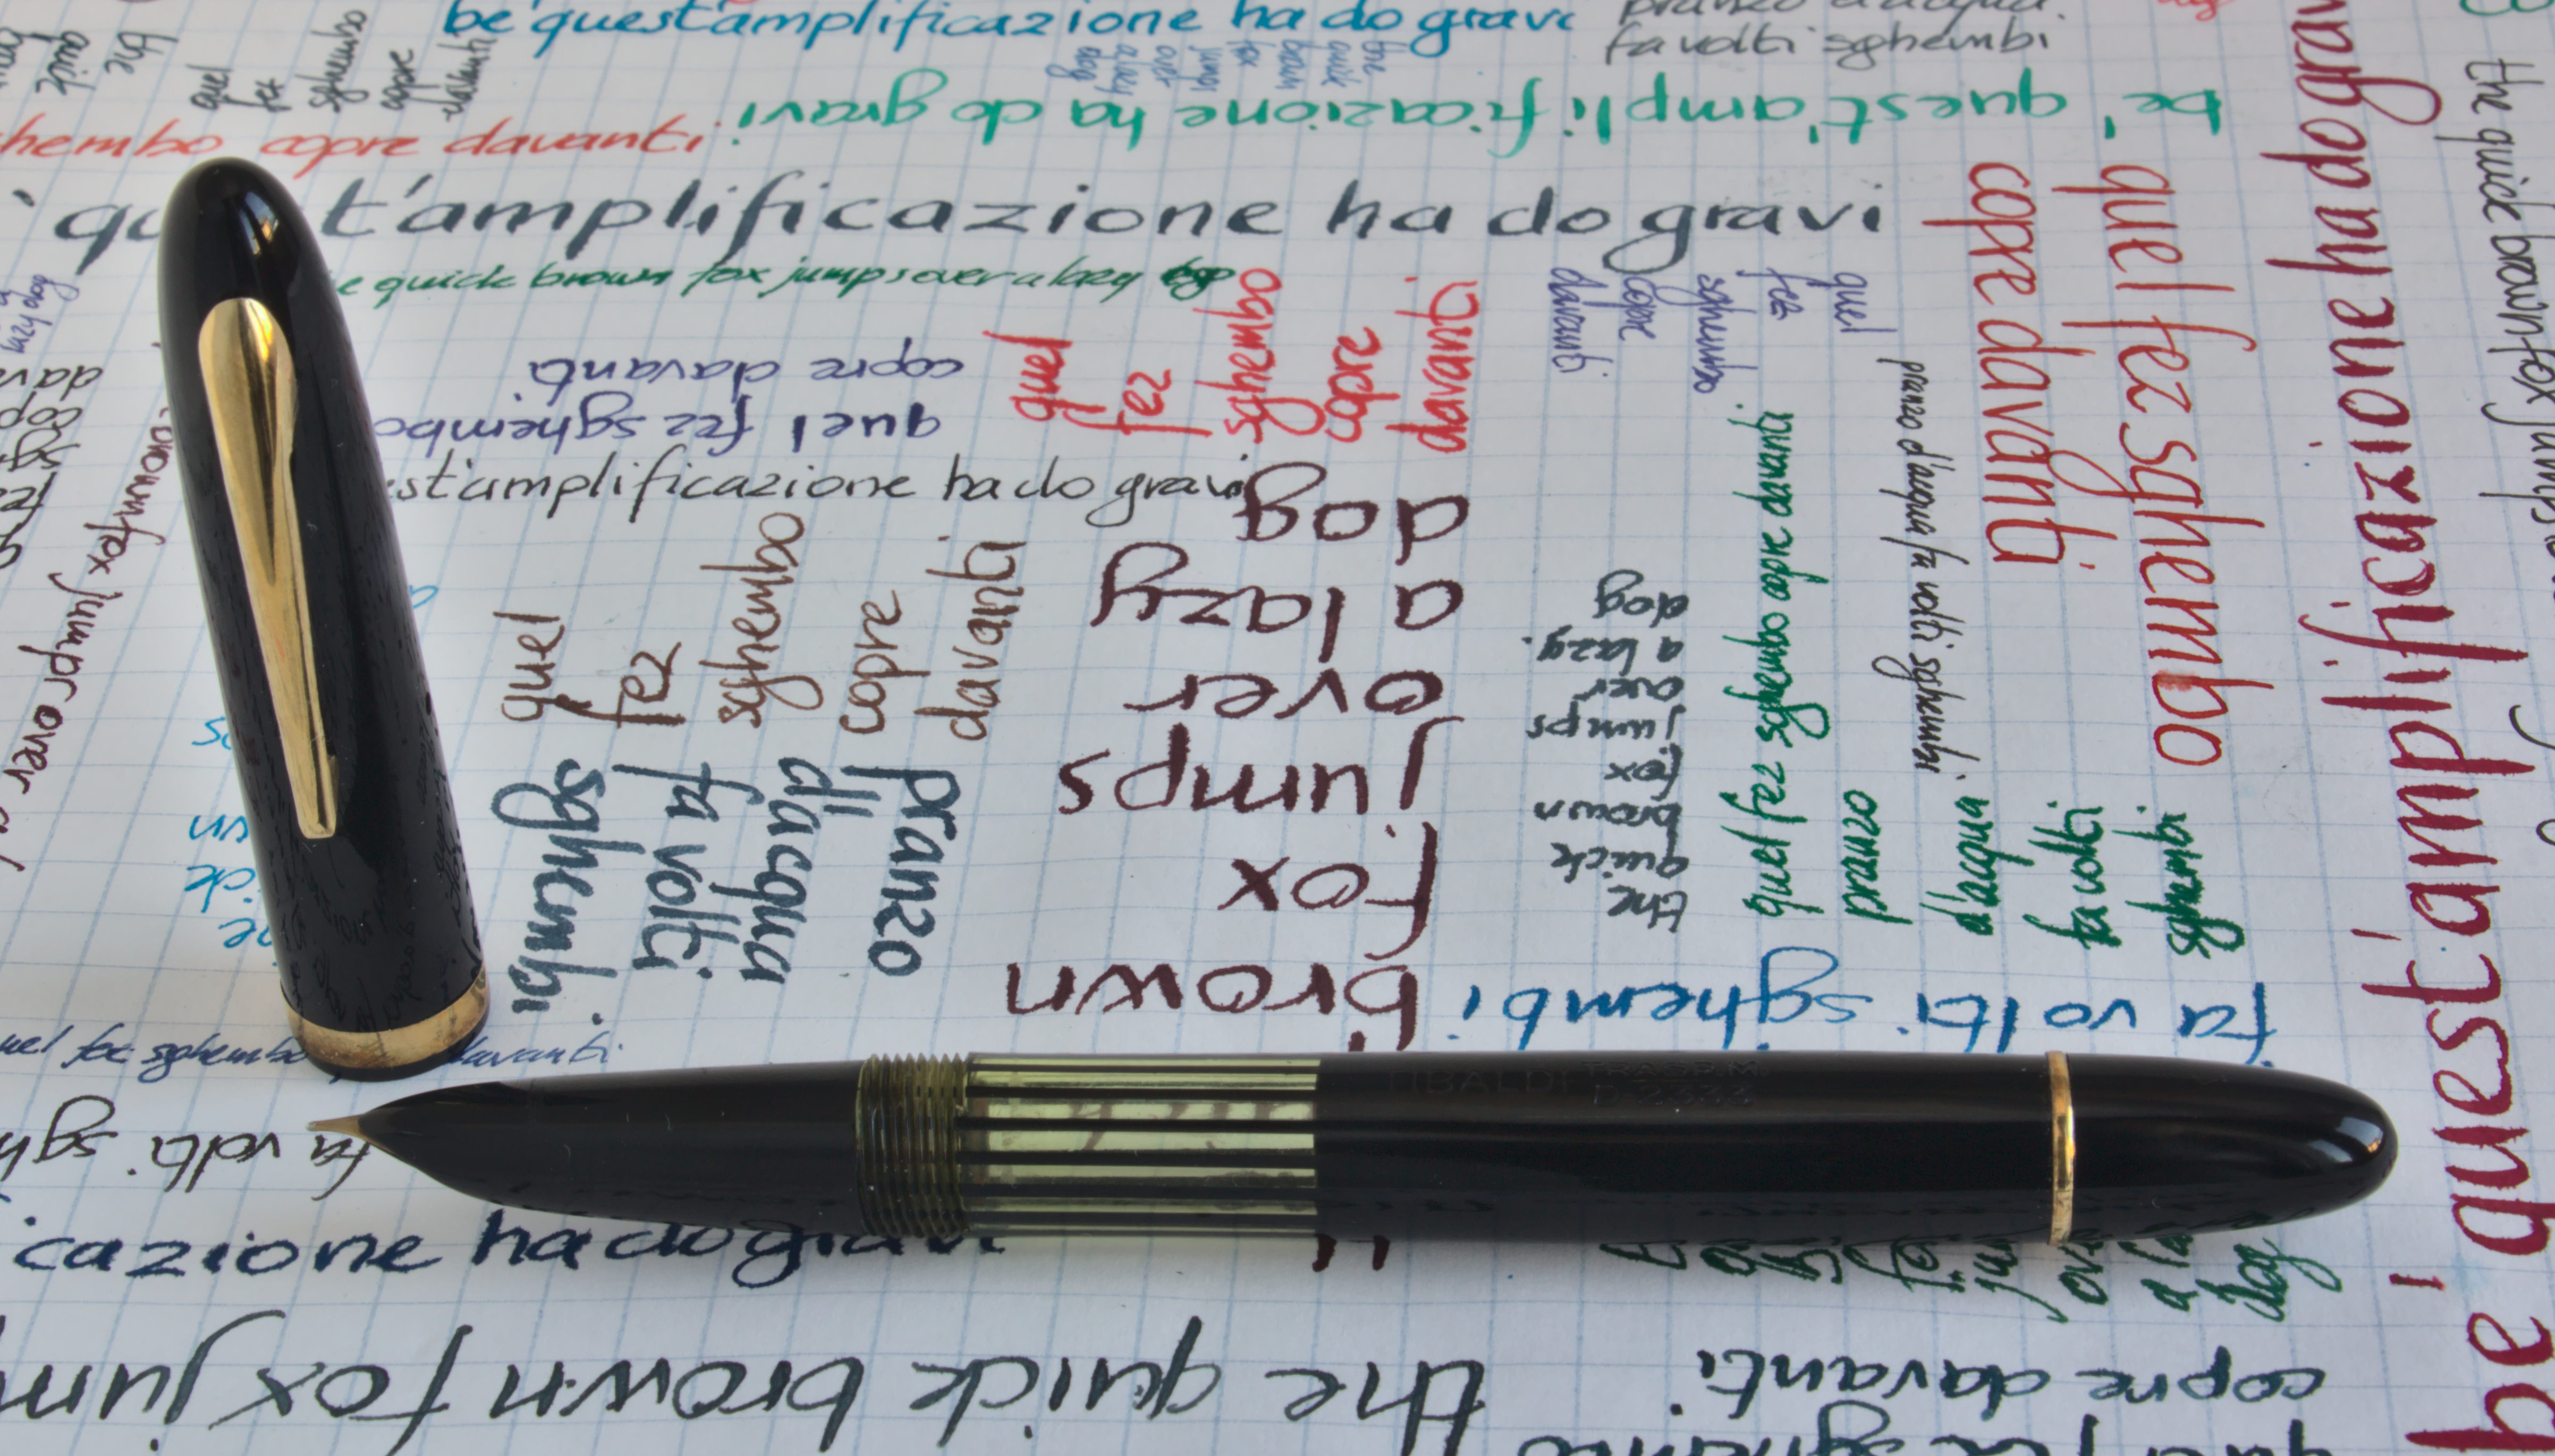 be' quest'amplificazione ha do gravi
fa volti sghembi
the
quick
brown
fox
jumps
over
a lazy
dog
the
quick
quel
fez
sghembo
copre
davanti
be' quest'amplificazione ha do gravi
copre davanti
t'amplificazione ha do gravi
quick brown fox jumps over a lazy dog
quel fez sghembo
copre davanti
quel
fez
sghembo
copre
davanti
quel
fez
sghembo
copre
davanti
quel fez sghembo
copre davanti
be' quest'amplificazione ha do grav
the quick brown fox jumps
st'amplificazione ha do gravi
brown fox jumps over a
lazy dog
quel
fez
sghembo
copre
davanti
pranzo
d'acqua
fa volti
sghembi
brown
fox
jumps
over
a lazy
dog
the
quick
brown
fox
jumps
over
a lazy
dog
quel fez sghembo copre davanti
pranzo d'acqua fa volti sghembi
pranzo
d'acqua
fa volti
sghembi
fa volti sghembi
fez sghembo
davanti
UBALDI
TRASP.M.
fa volti sgh
cazione ha do gravi
dog
the quick brown fox jum
copre davanti